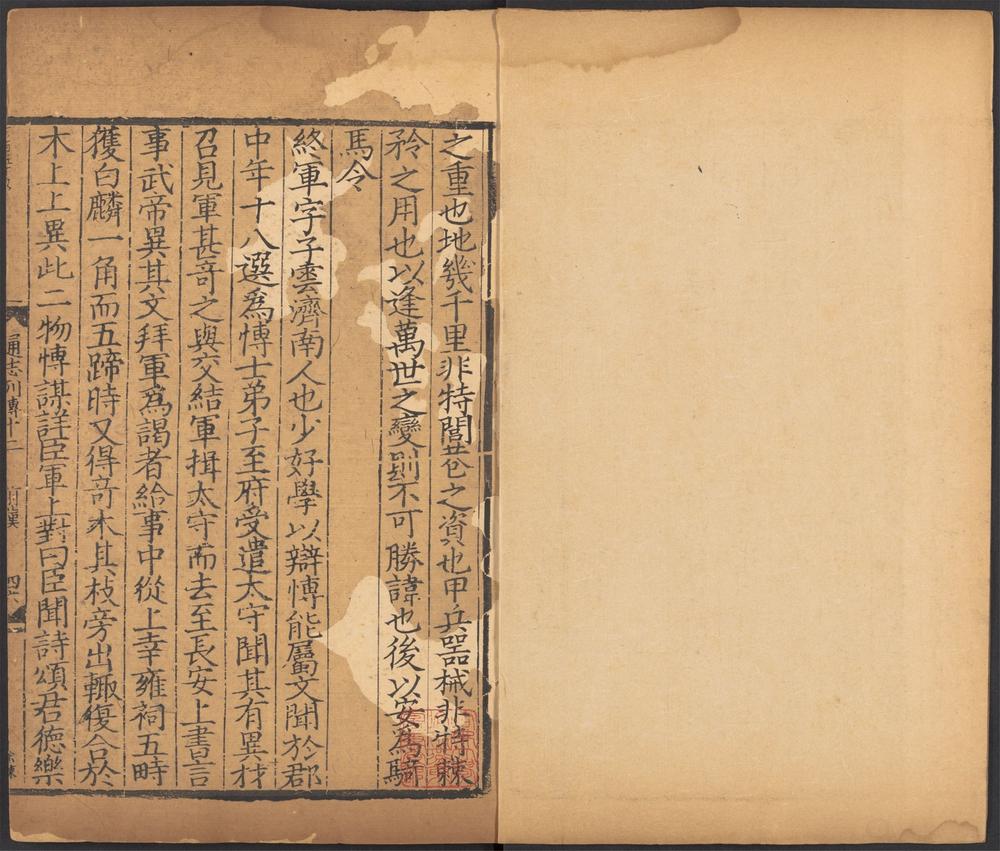 之重也地幾千里非特閭巷之資也甲兵器械非特棘
矜之用也以逢萬世之變則不可勝諱也後以安為騎
馬令
終軍字子雲濟南人也少好學以辯博能屬文聞於郡
中年十八選爲博士弟子至府受遣太守聞其有異材
召見軍甚奇之與交結軍揖太守而去至長安上書言
事武帝異其文拜軍爲謁者給事中從上幸雍祠五畤
獲白麟一角而五蹄時又得奇木其枝旁出輒復合於
木上上異此二物博謀詳臣軍上對曰臣聞詩頌君德樂
通志列傳十二
前漢
四六